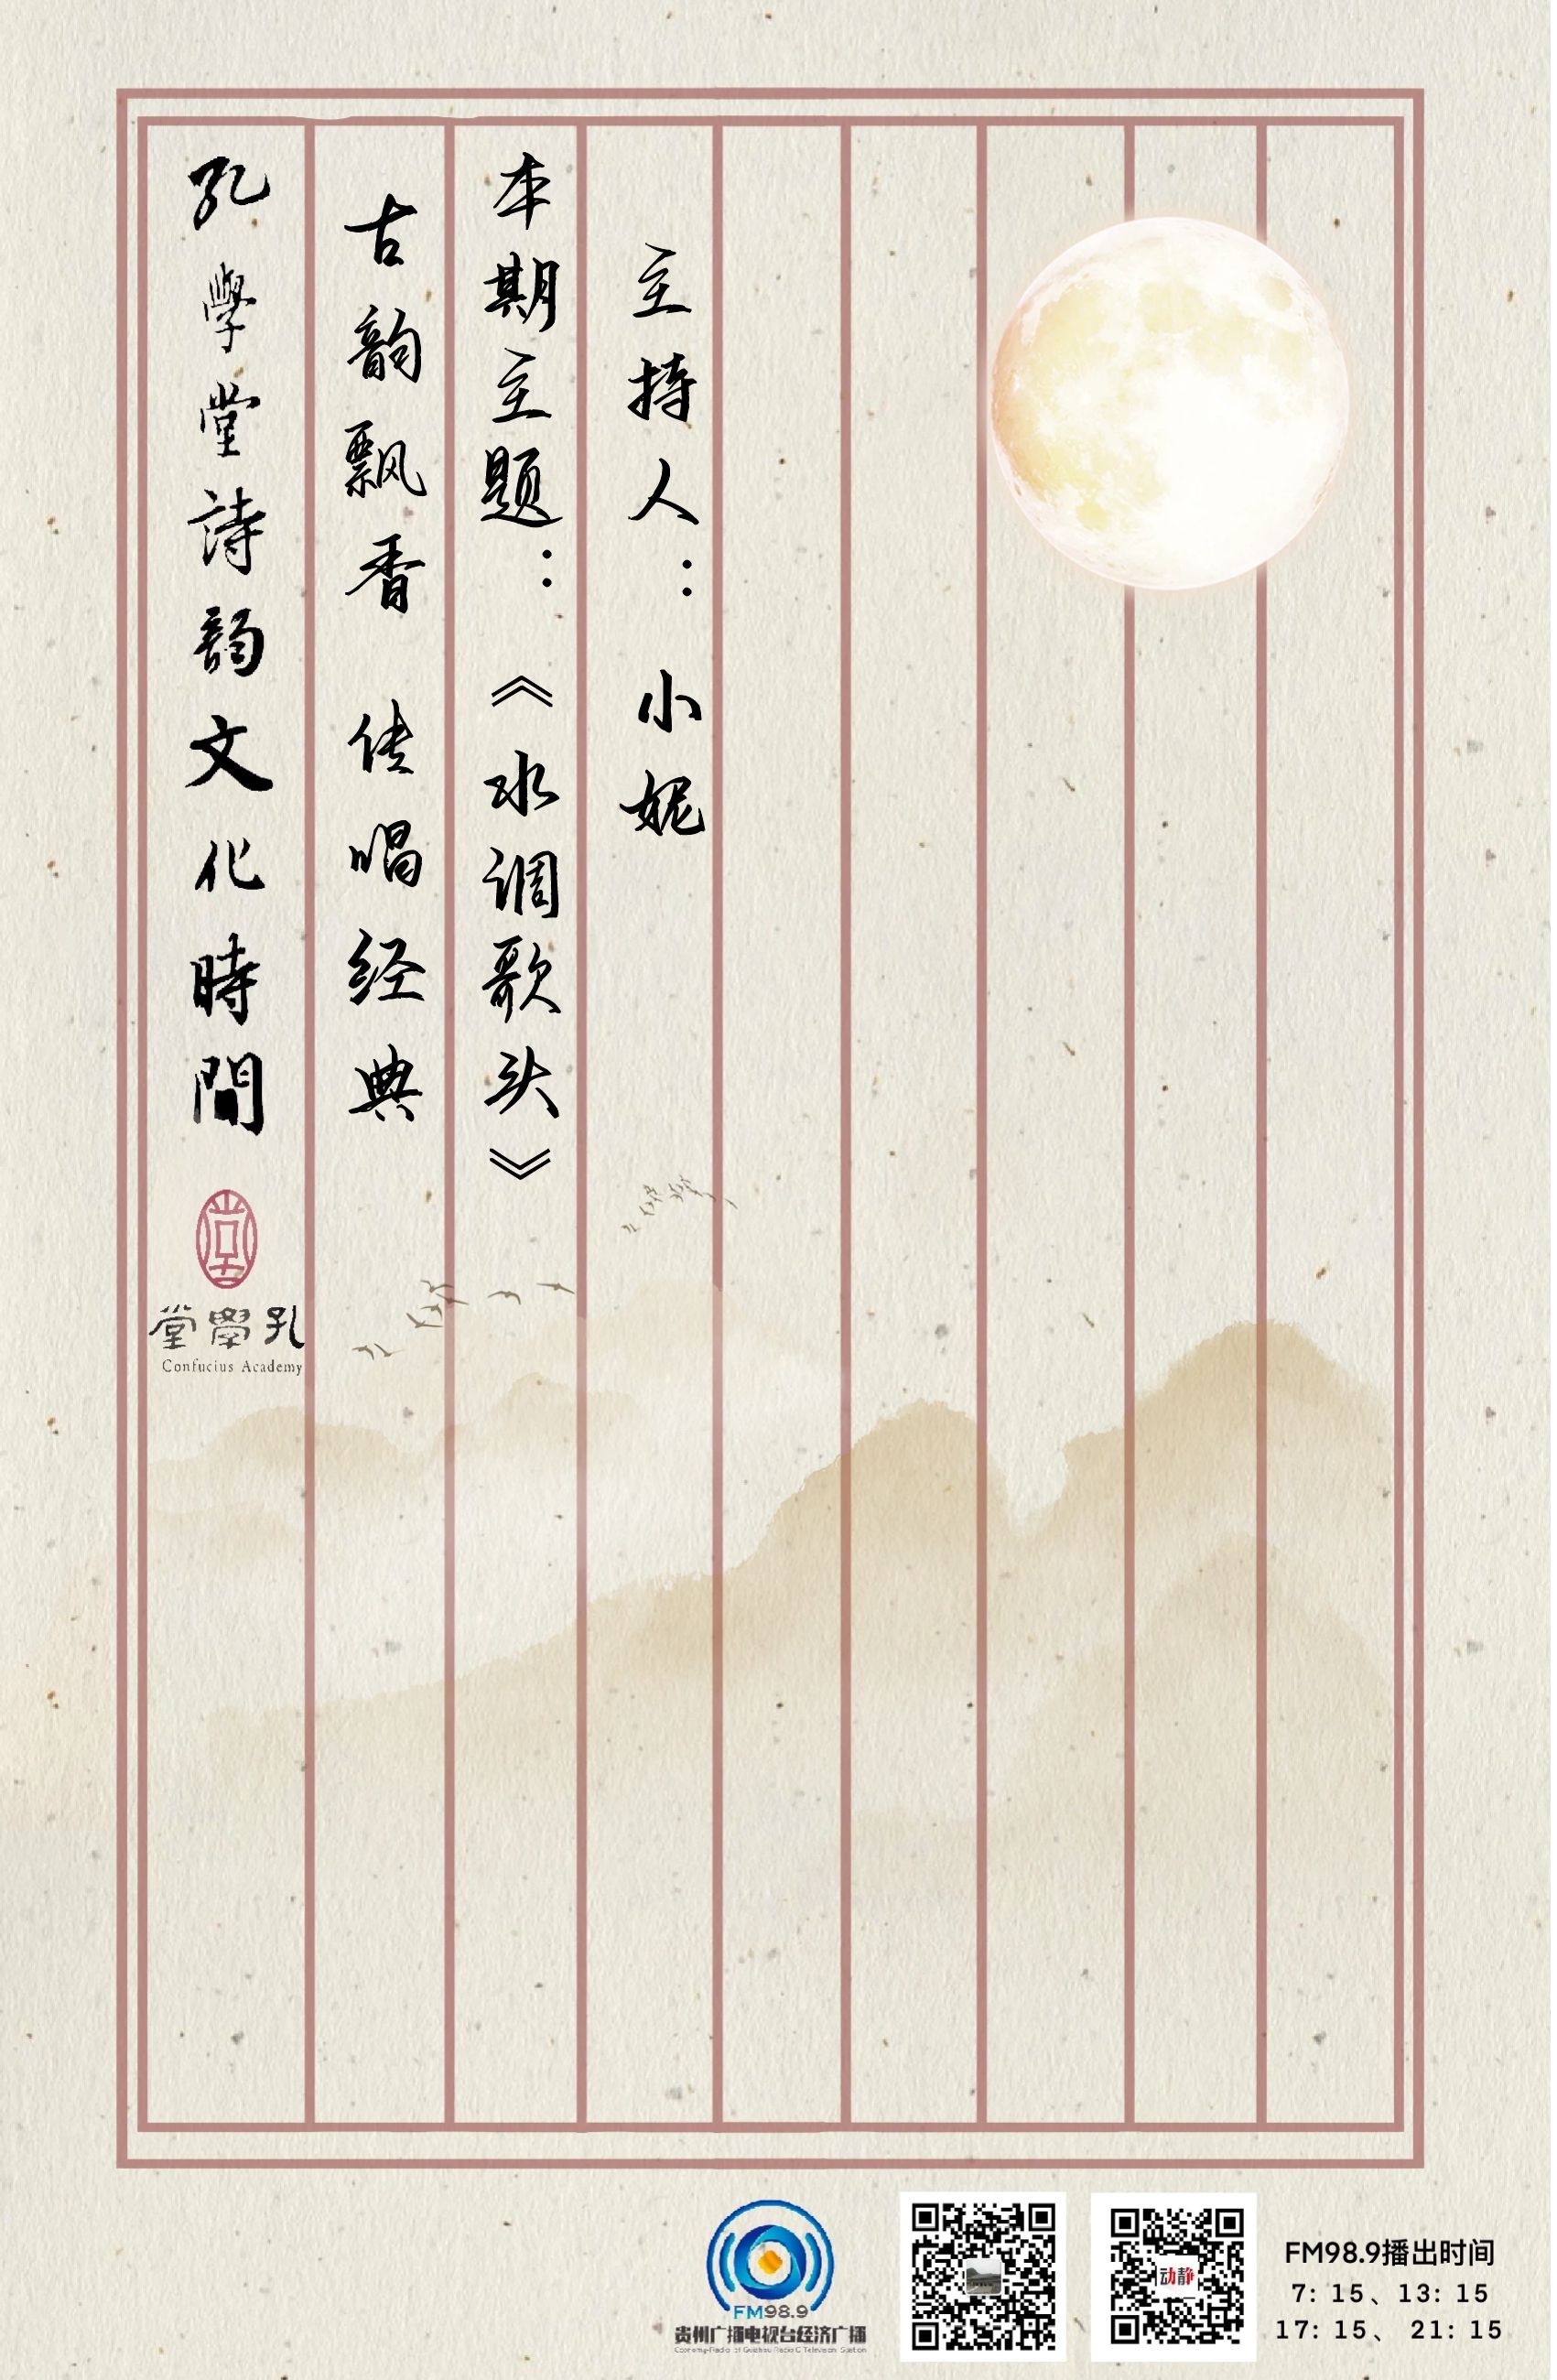 孔學堂詩韵文化時間
古韵飘香 传唱经典
本期主题：《水调歌头》
主持人：小妮
堂學孔
Confucius Academy
FM98.9
贵州广播电视台经济广播
动静
FM98.9播出时间
7: 15、13: 15
17: 15、 21: 15